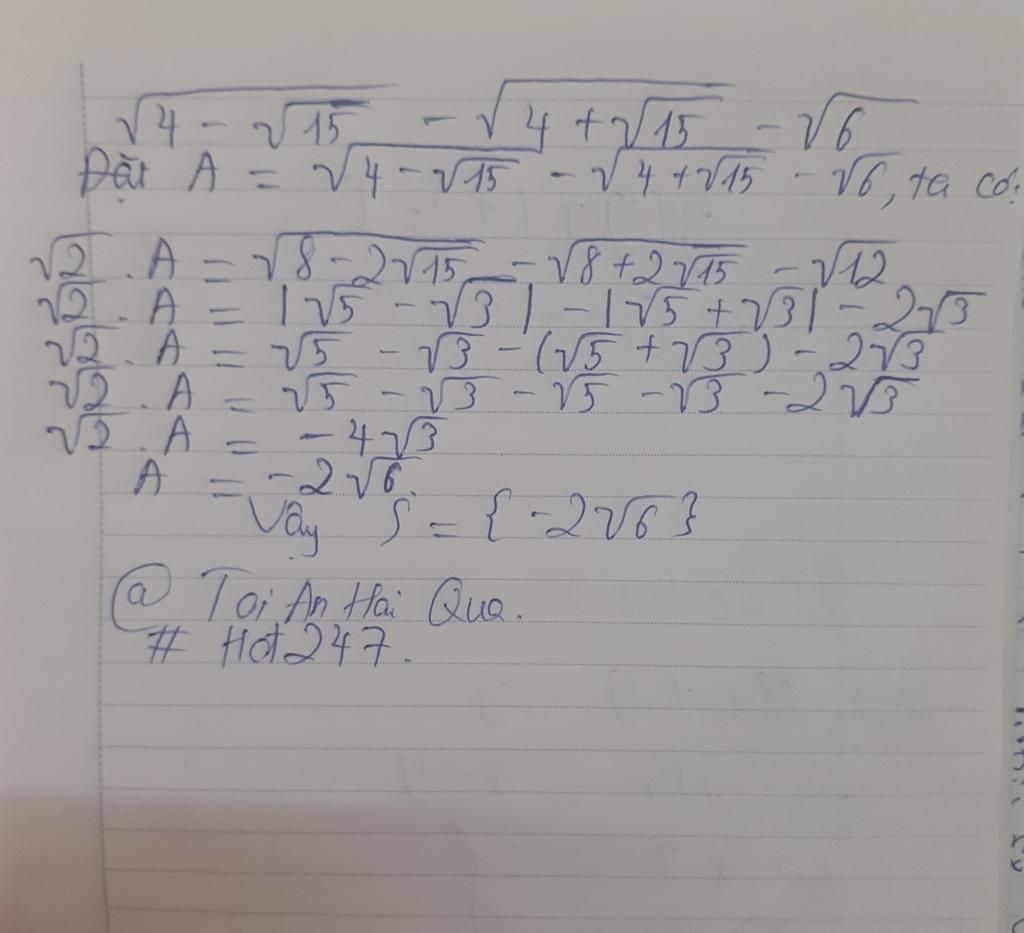 √(4 - √15) - √(4 + √15) - √6
Đặt A = √(4 - √15) - √(4 + √15) - √6, ta có:
√2 . A = √(8 - 2√15) - √(8 + 2√15) - √12
√2 . A = |√5 - √3| - |√5 + √3| - 2√3
√2 . A = √5 - √3 - (√5 + √3) - 2√3
√2 . A = √5 - √3 - √5 - √3 - 2√3
√2 . A = - 4√3
A = - 2√6.
Vậy S = {-2√6}
@ Toi An Hai Qua.
# Hot247.